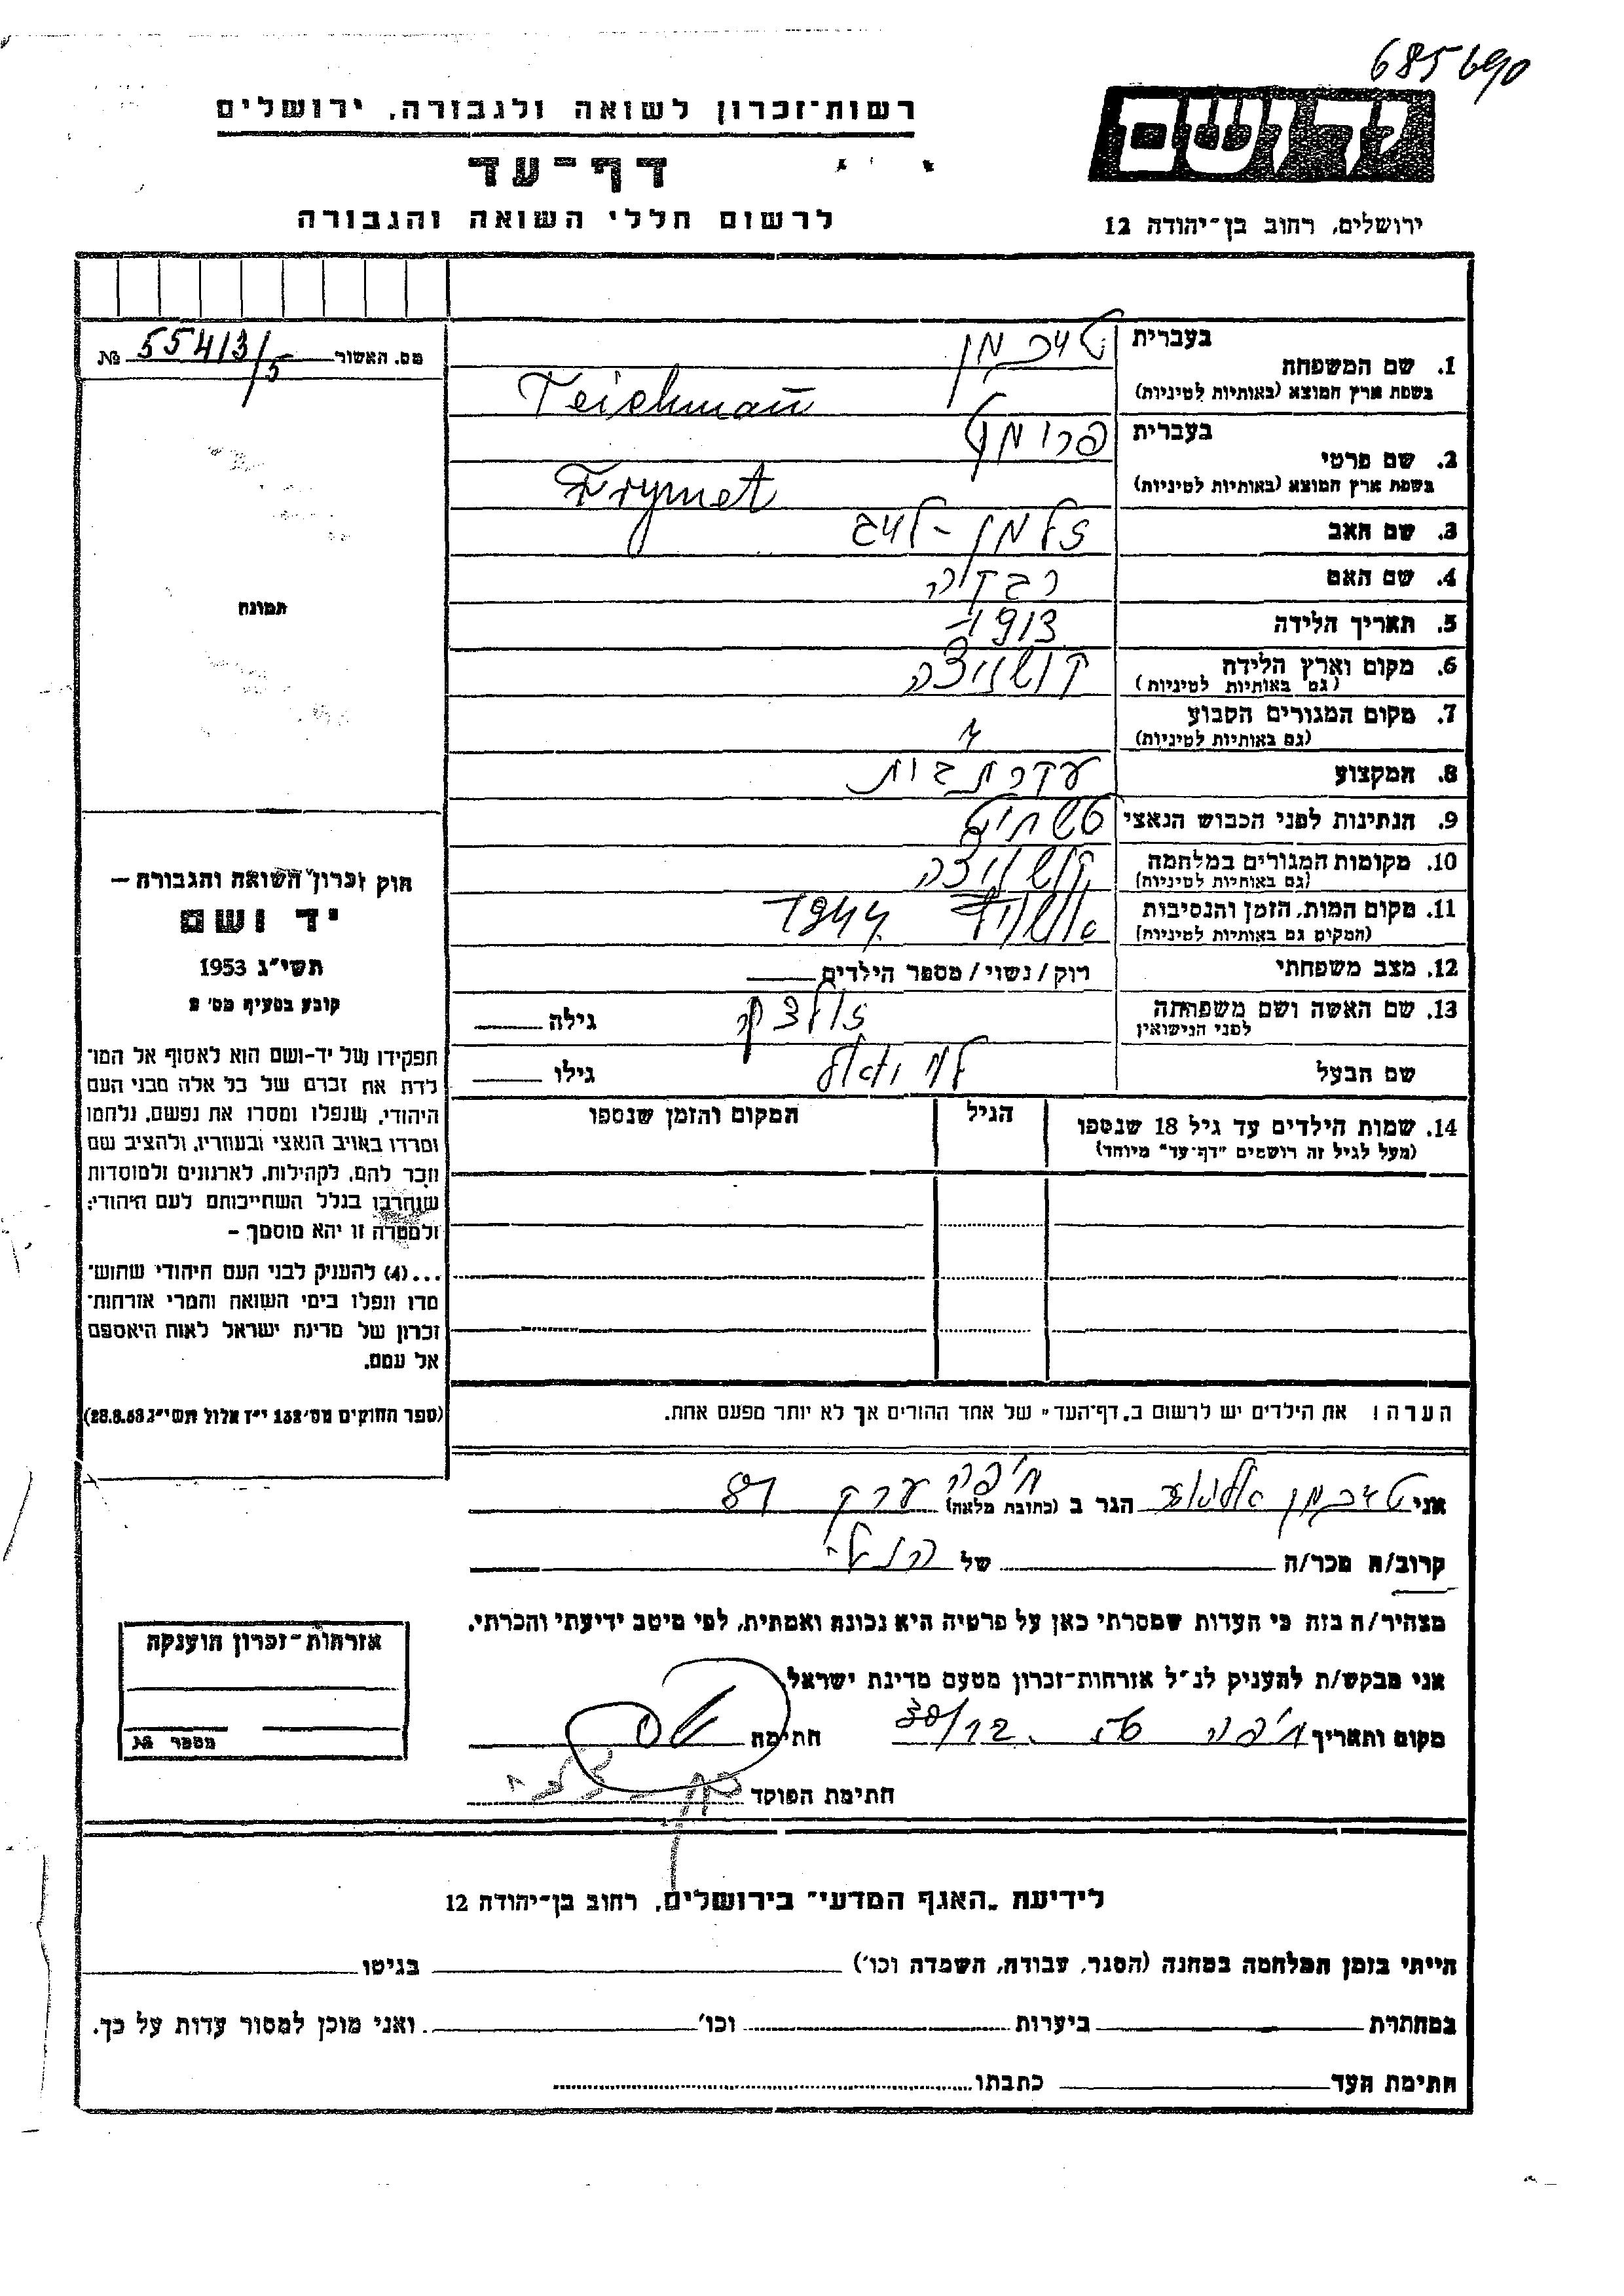 685690
יד ושם
ירושלים, רחוב בן־יהודה 12
רשות־זכרון לשואה ולגבורה, ירושלים
דף־עד
לרשום חללי השואה והגבורה
מס. האשור 55413/5 №
תמונה
בעברית
1. שם המשפחה טייכמן
בשפת ארץ המוצא (באותיות לטיניות) Teichman
בעברית
2. שם פרטי פרומט
בשפת ארץ המוצא (באותיות לטיניות) Frymet
3. שם האב זלמן - לייב
4. שם האם רבקה
5. תאריך הלידה 1913
6. מקום וארץ הלידה קושניצה
(גם באותיות לטיניות)
7. מקום המגורים הקבוע
(גם באותיות לטיניות)
8. המקצוע עקרת בית
9. הנתינות לפני הכבוש הנאצי
10. מקומות המגורים במלחמה קושניצה
(גם באותיות לטיניות)
11. מקום המות, הזמן והנסיבות 1944
(המקום גם באותיות לטיניות)
12. מצב משפחתי רוק/נשוי/מספר הילדים
13. שם האשה ושם משפחתה
לפני הנישואין
גילה
שם הבעל
גילו
14. שמות הילדים עד גיל 18 שנספו
(מעל לגיל זה רושמים "דף־עד" מיוחד)
הגיל
המקום והזמן שנספו
חוק זכרון השואה והגבורה —
יד ושם
תשי"ג 1953
קובע בסעיף מס' 2
תפקידו של יד-ושם הוא לאסוף אל המו־
לדת את זכרם של כל אלה מבני העם
היהודי, שנפלו ומסרו את נפשם, נלחמו
ומרדו באויב הנאצי ובעוזריו, ולהציב שם
וזכר להם, לקהילות, לארגונים ולמוסדות
שנחרבו בגלל השתייכותם לעם היהודי;
ולמטרה זו יהא מוסמך —
...(4) להעניק לבני העם היהודי שהוש־
מדו ונפלו בימי השואה והמרי אזרחות־
זכרון של מדינת ישראל לאות היאספם
אל עמם.
(ספר החוקים מס' 132 י"ז אלול תשי"ג 28.8.53)
הערה: את הילדים יש לרשום ב"דף־העד" של אחד ההורים אך לא יותר מפעם אחת.
אני טייכמן הגר ב (כתובת מלאה) חיפה
קרוב/ה מכר/ה של
מצהיר/ה בזה כי העדות שמסרתי כאן על פרטיה היא נכונה ואמתית, לפי מיטב ידיעתי והכרתי.
אני מבקש/ת להעניק לנ"ל אזרחות־זכרון מטעם מדינת ישראל.
מקום ותאריך חיפה חתימה
חתימת הפוקד
אזרחות־זכרון הוענקה
מספר №
לידיעת "האגף המדעי" בירושלים, רחוב בן־יהודה 12
הייתי בזמן המלחמה במחנה (הסגר, עבודה, השמדה וכו') בגיטו
במחתרת ביערות וכו' ואני מוכן למסור עדות על כך.
חתימת העד כתבתו